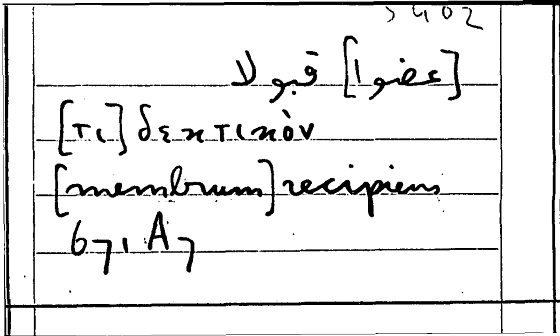 [عضوا] قبولا
[τι] δεκτικὸν
[membrum] recipiens
671 A7